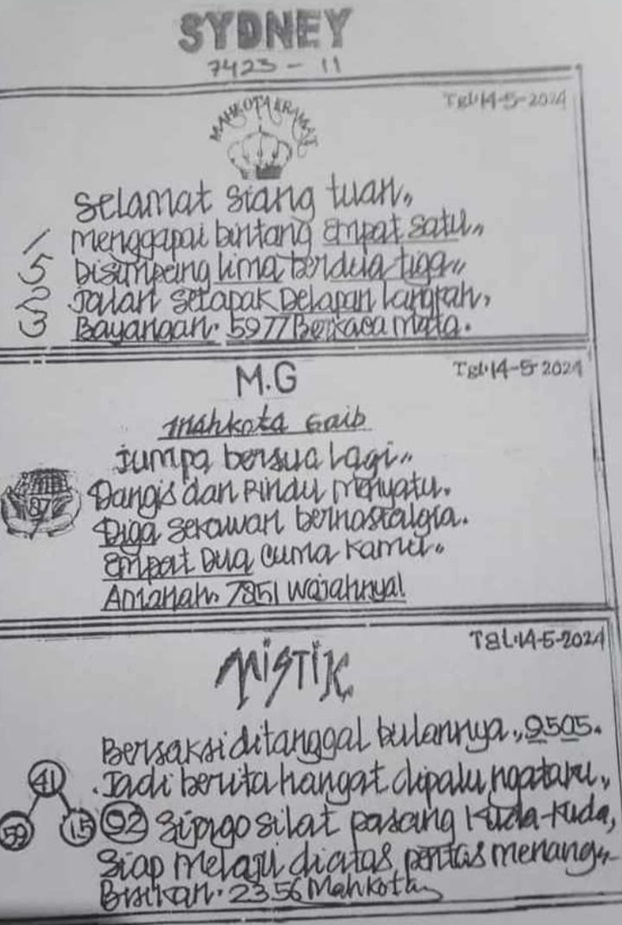 SYDNEY
7423 - 11
Tgl.14-5-2024
MAHKOTA KRAMAT
Selamat siang tuan,,
1 menggapai bintang empat satu,,
5 Disamping lima berdua tiga,,
2 Jalan setapak Delapan langkah,
3 Bayangan. 5977 Berkaca mata.
M.G
Tgl.14-5-2024
Mahkota Gaib
Jumpa bersua lagi,,
87
dan Rindu menyatu.
sekawan bernostalgia.
Empat Dua cuma kamu.
Amanah. 7851 wajahnya!
MISTIK
Tgl.14-5-2024
Bersaksi ditanggal bulannya,, 9505.
41 Jadi berita hangat dipalu
59 15 92 silat pasang kuda-kuda,
Siap melaju diatas pentas menang,,
Bisikan. 2356 Mahkota